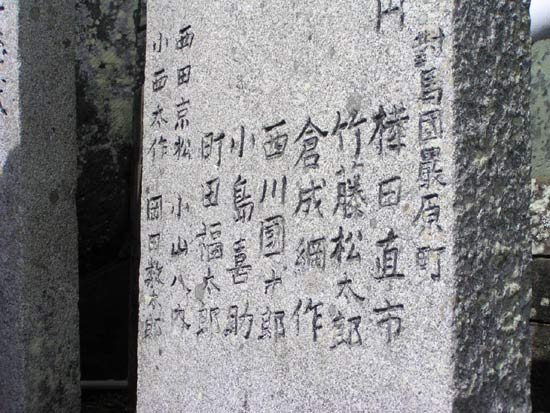 對馬國嚴原町
桟田直市
竹藤松太郎
倉成網作
西川國太郎
小島喜助
町田福太郎
西田京松 小山八内
小西太作 岡田救太郎